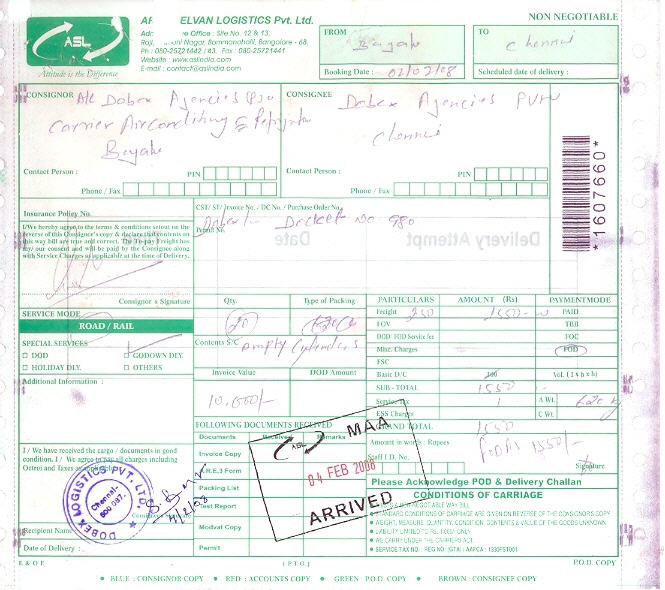 ELVAN LOGISTICS Pvt. Ltd.
Office : Site No. 12 & 13,
Nagar, Bommanahalli, Bangalore - 68.
Ph : 080-25721442 / 83. Fax : 080-25721441
Website : www.aslindia.com
E-mail : contact@aslindia.com
ASL
Attitude is the Difference
NON NEGOTIABLE
FROM
Booking Date : 02/02/08
TO
Chennai
Scheduled date of delivery :
CONSIGNOR
A/c Dobex Agencies
Carrier Airconditing &
CONSIGNEE
Dobex Agencies
Chennai
Contact Person :
PIN
Phone / Fax
Contact Person :
PIN
Phone / Fax
*1607660*
Insurance Policy No.
CST/ ST/ Invoice No. / DC No. / Purchase Order No.
Docket No. 980
Permit No.
I/We hereby agree to the terms & conditions setout on the
reverse of this Consignor's copy & declare that contents on
this way bill are true and correct. The To-pay Freight has
my/our consent and will be paid by the Consignee along
with Service Charges as applicable at the time of Delivery.
Date
Delivery Attempt
Consignor s Signature
SERVICE MODE
ROAD / RAIL
SPECIAL SERVICES
DOD
GODOWN DLY.
HOLIDAY DLY.
OTHERS
Additional Information :
Qty.
Type of Packing
20
Contents S/C
empty cylinders
Invoice Value
DOD Amount
10,000/-
PARTICULARS
AMOUNT (Rs)
PAYMENTMODE
Freight
1550
PAID
FOV
TBB
DOD / FOD Service fee
FOC
Misc. Charges
FOD
FSC
Basic D/C
100
Vol. (l x b x h)
SUB - TOTAL
1550
Service Tax
A Wt.
ESS Charges
C Wt.
GRAND TOTAL
1550
Amount in words : Rupees
1550/-
Staff I.D. No.
Signature
FOLLOWING DOCUMENTS RECEIVED
Documents
Received
Remarks
Invoice Copy
A.R.E.3 Form
Packing List
Test Report
Modvat Copy
Permit
ASL
MAA
04 FEB 2008
ARRIVED
I / We have received the cargo / documents in good
condition. I / We agree to pay all charges including
Octroi and Taxes as applicable
DOBEX LOGISTICS PVT. LTD.
Chennai-
600 087.
4/2/08
Recipient Name
Date of Delivery :
Please Acknowledge POD & Delivery Challan
CONDITIONS OF CARRIAGE
NON NEGOTIABLE WAY BILL
STANDARD CONDITIONS OF CARRIAGE ARE GIVEN ON REVERSE OF THE CONSIGNOR'S COPY
WEIGHT, MEASURE, QUANTITY, CONDITION, CONTENTS & VALUE OF THE GOODS UNKNOWN
WE CARRY UNDER THE CARRIERS ACT
E & O E
( P.T.O.)
P.O.D. COPY
BLUE : CONSIGNOR COPY
RED : ACCOUNTS COPY
GREEN : P.O.D. COPY
BROWN : CONSIGNEE COPY